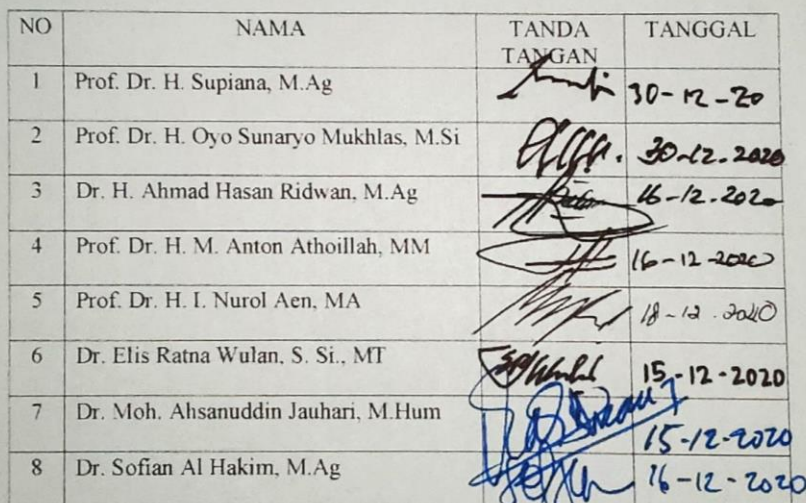 NO NAMA TANDA TANGAN TANGGAL
1 Prof. Dr. H. Supiana, M.Ag 30-12-20
2 Prof. Dr. H. Oyo Sunaryo Mukhlas, M.Si 30-12.2020
3 Dr. H. Ahmad Hasan Ridwan, M.Ag 16-12.2020
4 Prof. Dr. H. M. Anton Athoillah, MM 16-12-2020
5 Prof. Dr. H. I. Nurol Aen, MA 18-12.2020
6 Dr. Elis Ratna Wulan, S. Si., MT 15-12-2020
7 Dr. Moh. Ahsanuddin Jauhari, M.Hum 15-12-2020
8 Dr. Sofian Al Hakim, M.Ag 16-12-2020